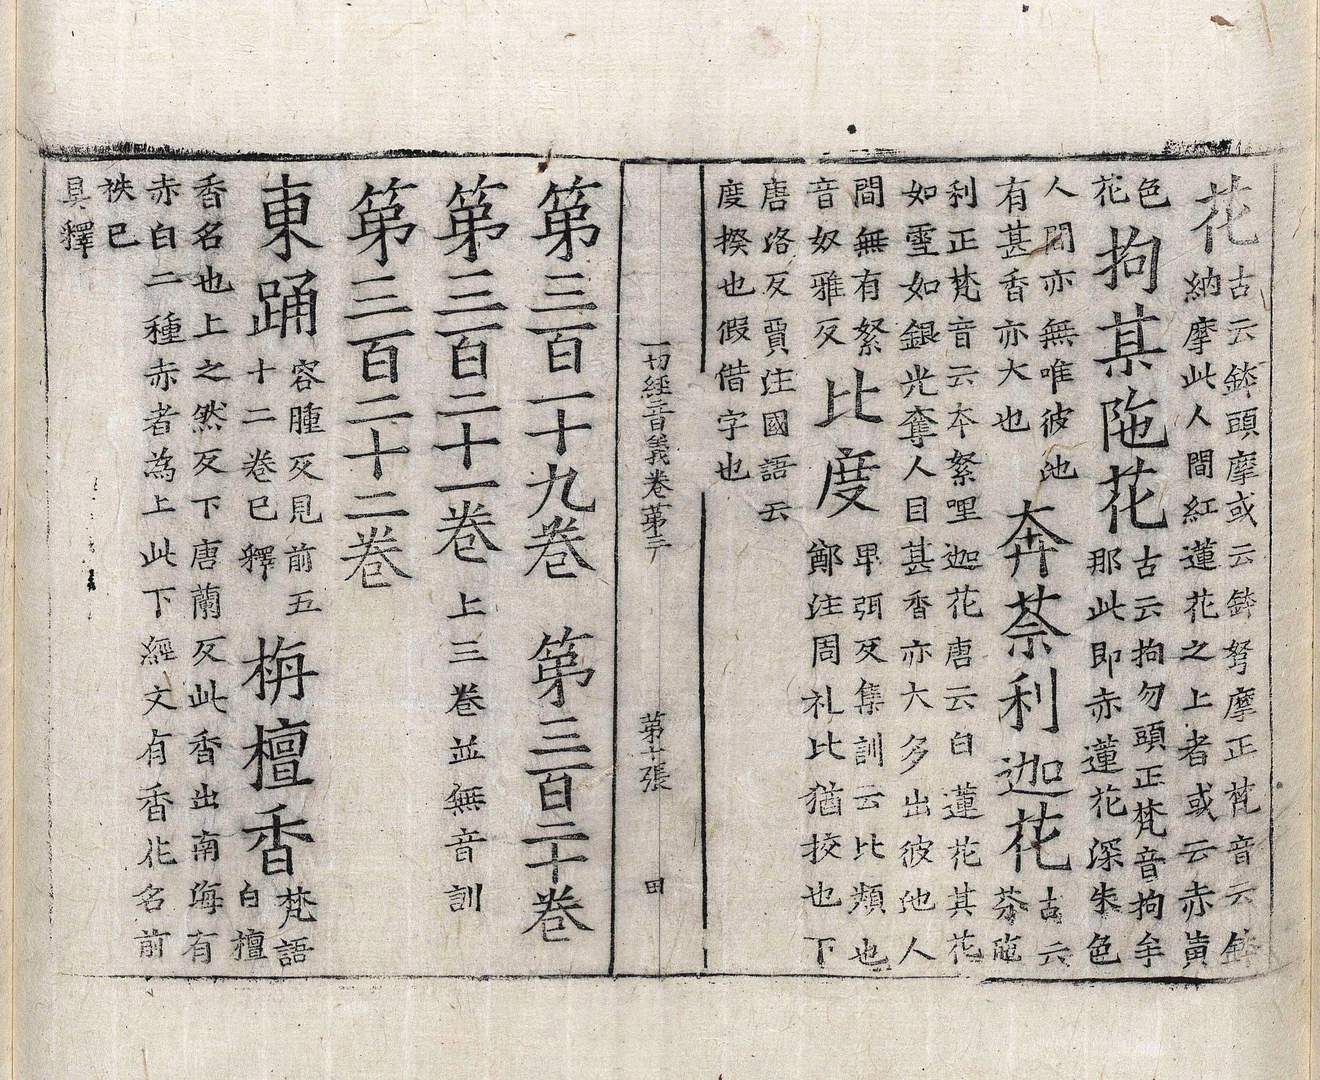 花古云鉢頭摩或云鉢弩摩正梵音云鉢
納摩此人間紅蓮花之上者或云赤黃
色拘某陁花古云拘勿頭正梵音拘牟
花那此即赤蓮花深朱色
人間亦無唯彼池奔荼利迦花古云
有甚香亦大也芬陁
利正梵音云本絮哩迦花唐云白蓮花其花
如雪如銀光奪人目甚香亦大多出彼池人
間無有絮比度卑弭反集訓云比類也
音奴雅反鄭注周礼比猶挍也下
唐洛反賈注國語云
度揆也假借字也
一切經音義卷第三 第十張 田
第三百一十九卷 第三百二十卷
第三百二十一卷 上三卷並無音訓
第三百二十二卷
東踊容腫反見前五栴檀香梵語
十二卷已釋白檀
香名也上之然反下唐蘭反此香出南海有
赤白二種赤者為上此下經文有香花名前
袟已
具釋